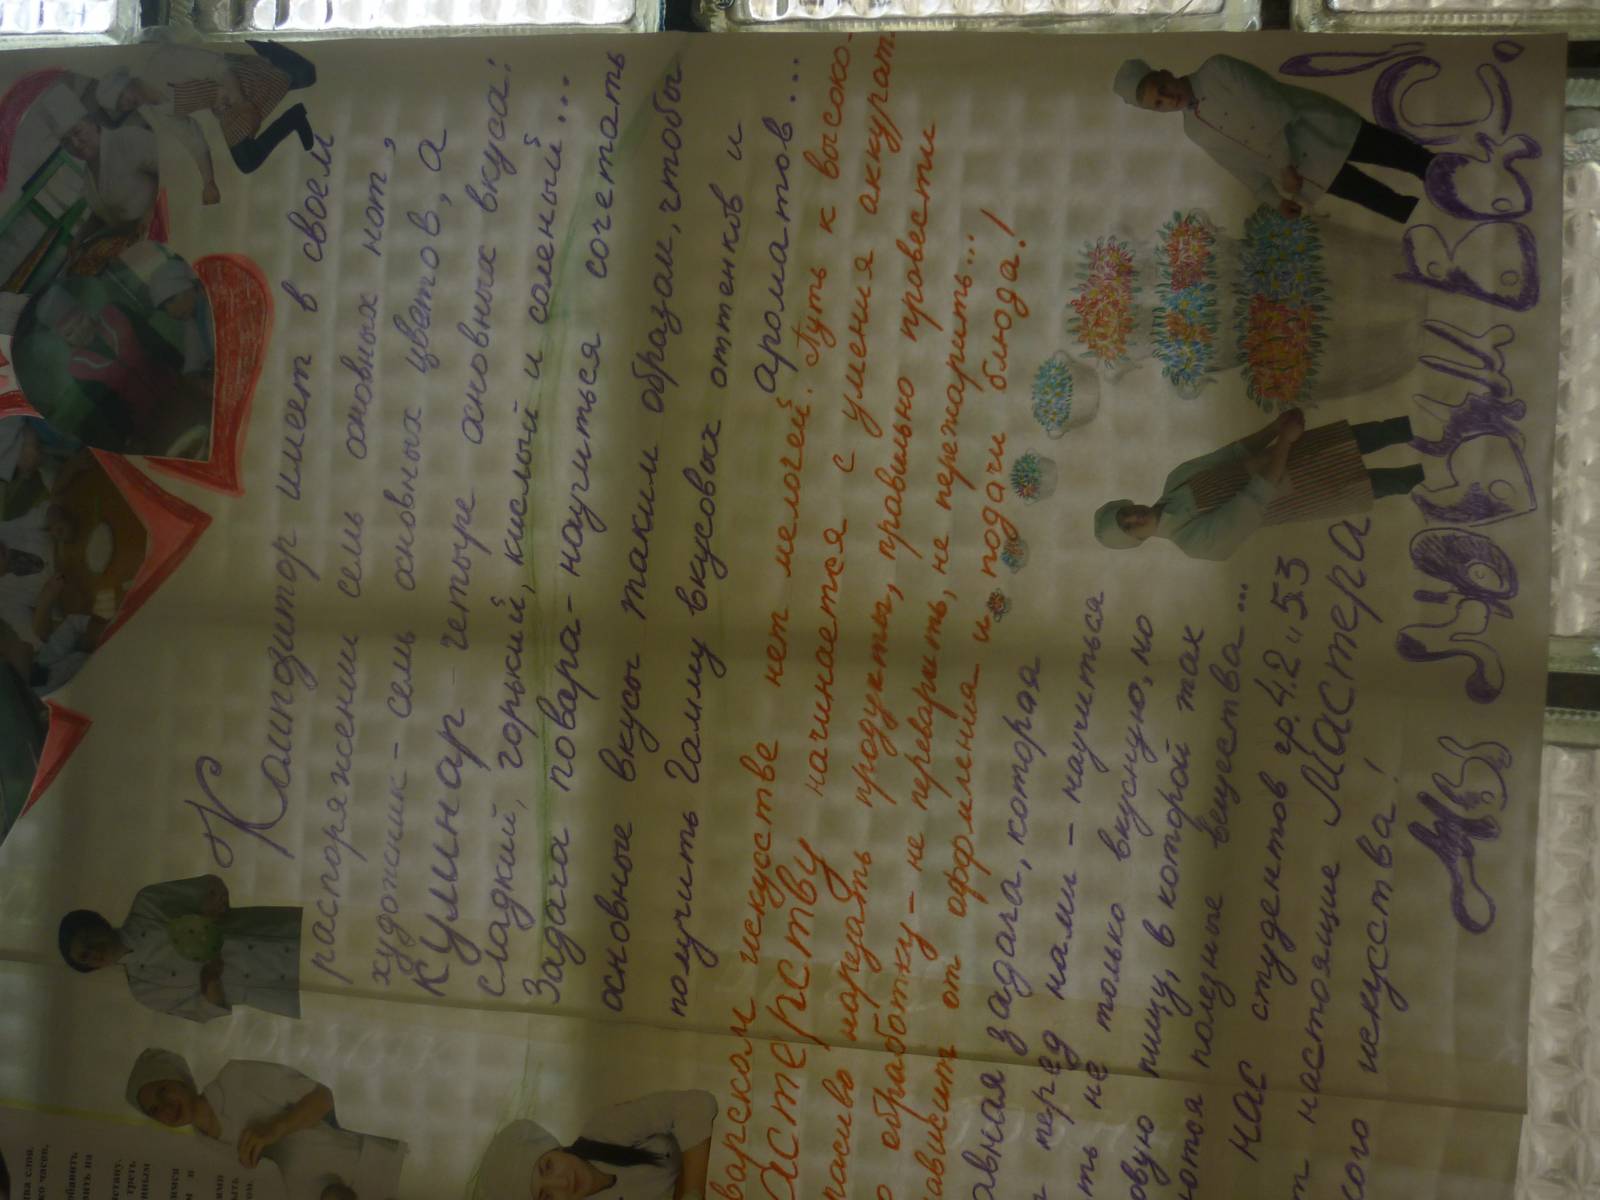 Композитор имеет в своем
распоряжении семь основных нот,
художник - семь основных цветов, а
Кулинар - четыре основных вкуса:
сладкий, горький, кислый и соленый...
Задача повара - научиться сочетать
основные вкусы таким образом, чтобы
получить гамму вкусовых оттенков и
ароматов...
варском искусстве нет мелочей. Путь к высоко-
астерству начинается с умения аккурат-
расиво нарезать продукты, правильно провести
обработку - не переварить, не пережарить...
ависит от оформления и подачи блюда!
авная задача, которая
перед нами - научиться
ть не только вкусную, но
овую пищу, в которой так
ются полезные вещества...
нас студентов гр. 4.2 и 5.3
т настоящие Мастера
кого искусства!
Мы любим Вас!